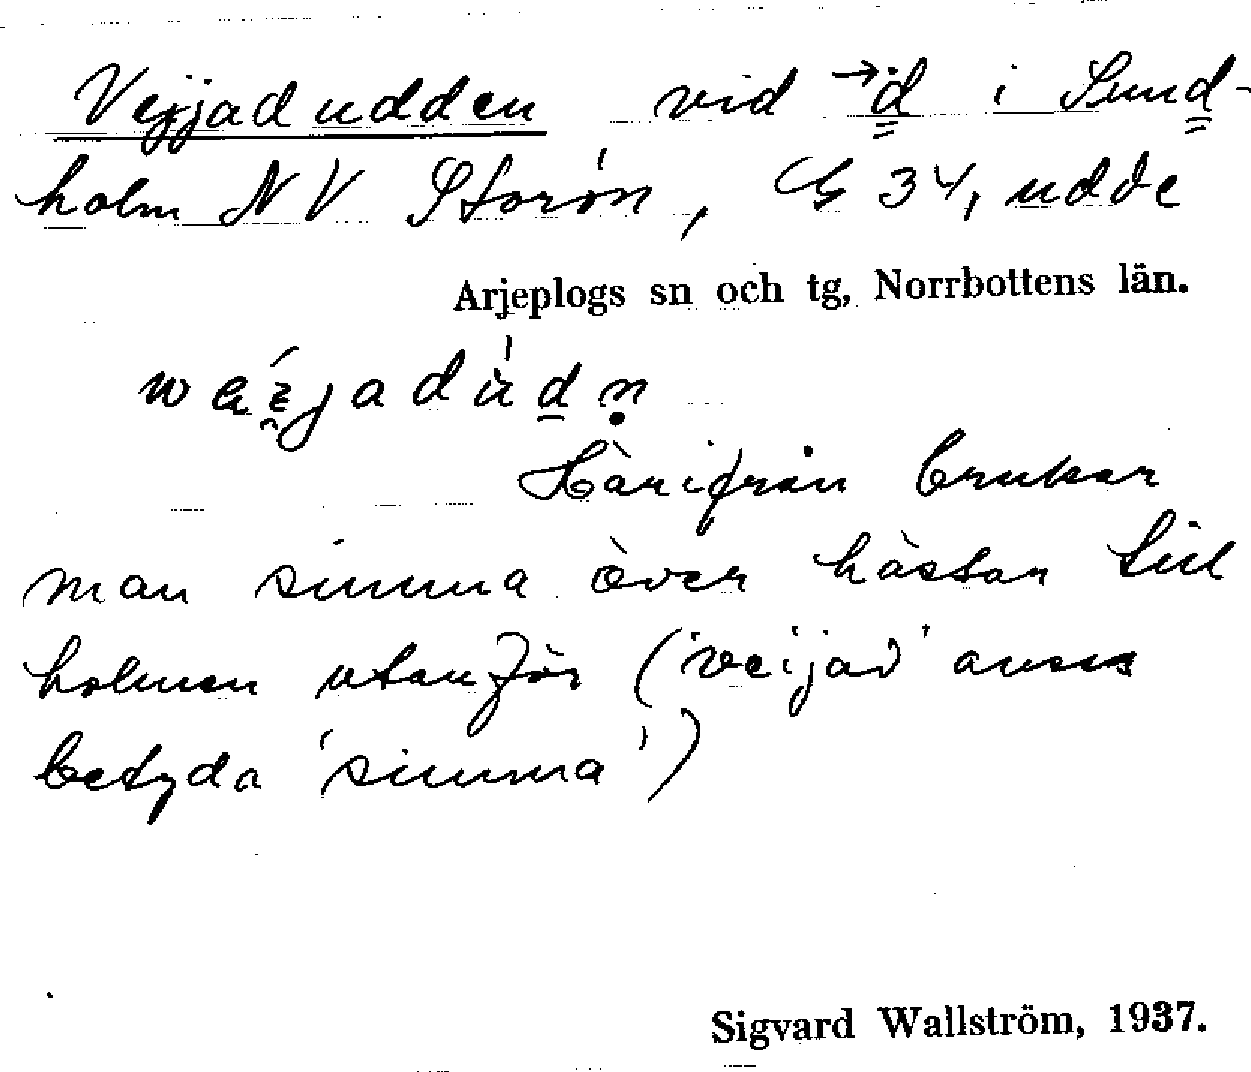 Vejjadudden vid →d i Sund-
holm NV Storön, G 34, udde
Arjeplogs sn och tg, Norrbottens län.
Härifrån brukar
man simma över hästar till
holmen utanför ('veijad' anses
betyda 'simma')
Sigvard Wallström, 1937.